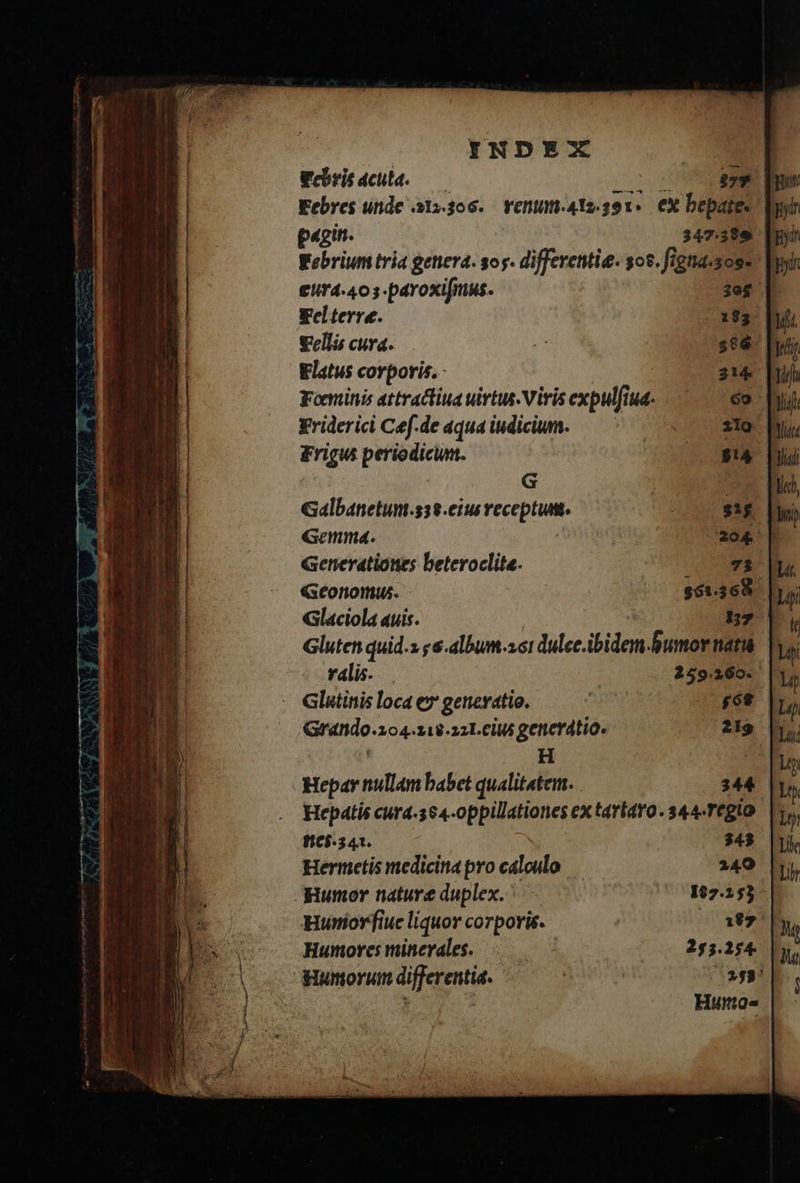 INDEX
Febris acuta.
Febres unde .212.306. renum.412.391. ex hepate.
pagin. 347.389
Febrium tria genera. 505. differentiæ. 508. ſigna.509.
cura.403.paroxiſmus. 305
Fel terræ. 183
Fellis cura. 386
Flatus corporis. 314
Fœminis attractiua uirtus.Viris expulſiua. 60
Friderici Cæſ.de aqua iudicium. 210
Frigus periodicum. 514
G
Galbanetum.538.eius receptum. 515
Gemma. 204
Generationes heteroclitæ. 73
Geonomus. 361.368
Glaciola auis. 137
Gluten quid.256.album.261 dulce.ibidem.humor natu
ralis. 259.260.
Glutinis loca er generatio. 568
Grando.204.218.221.eius generatio. 219
H
Hepar nullam habet qualitatem. 344
Hepatis cura.384.oppillationes ex tartaro.344.regio
nes.341. 343
Hermetis medicina pro calculo 240
Humor naturæ duplex. 187.253
Humor ſiue liquor corporis. 187
Humores minerales. 253.254
Humorum differentia. 253
Humo-